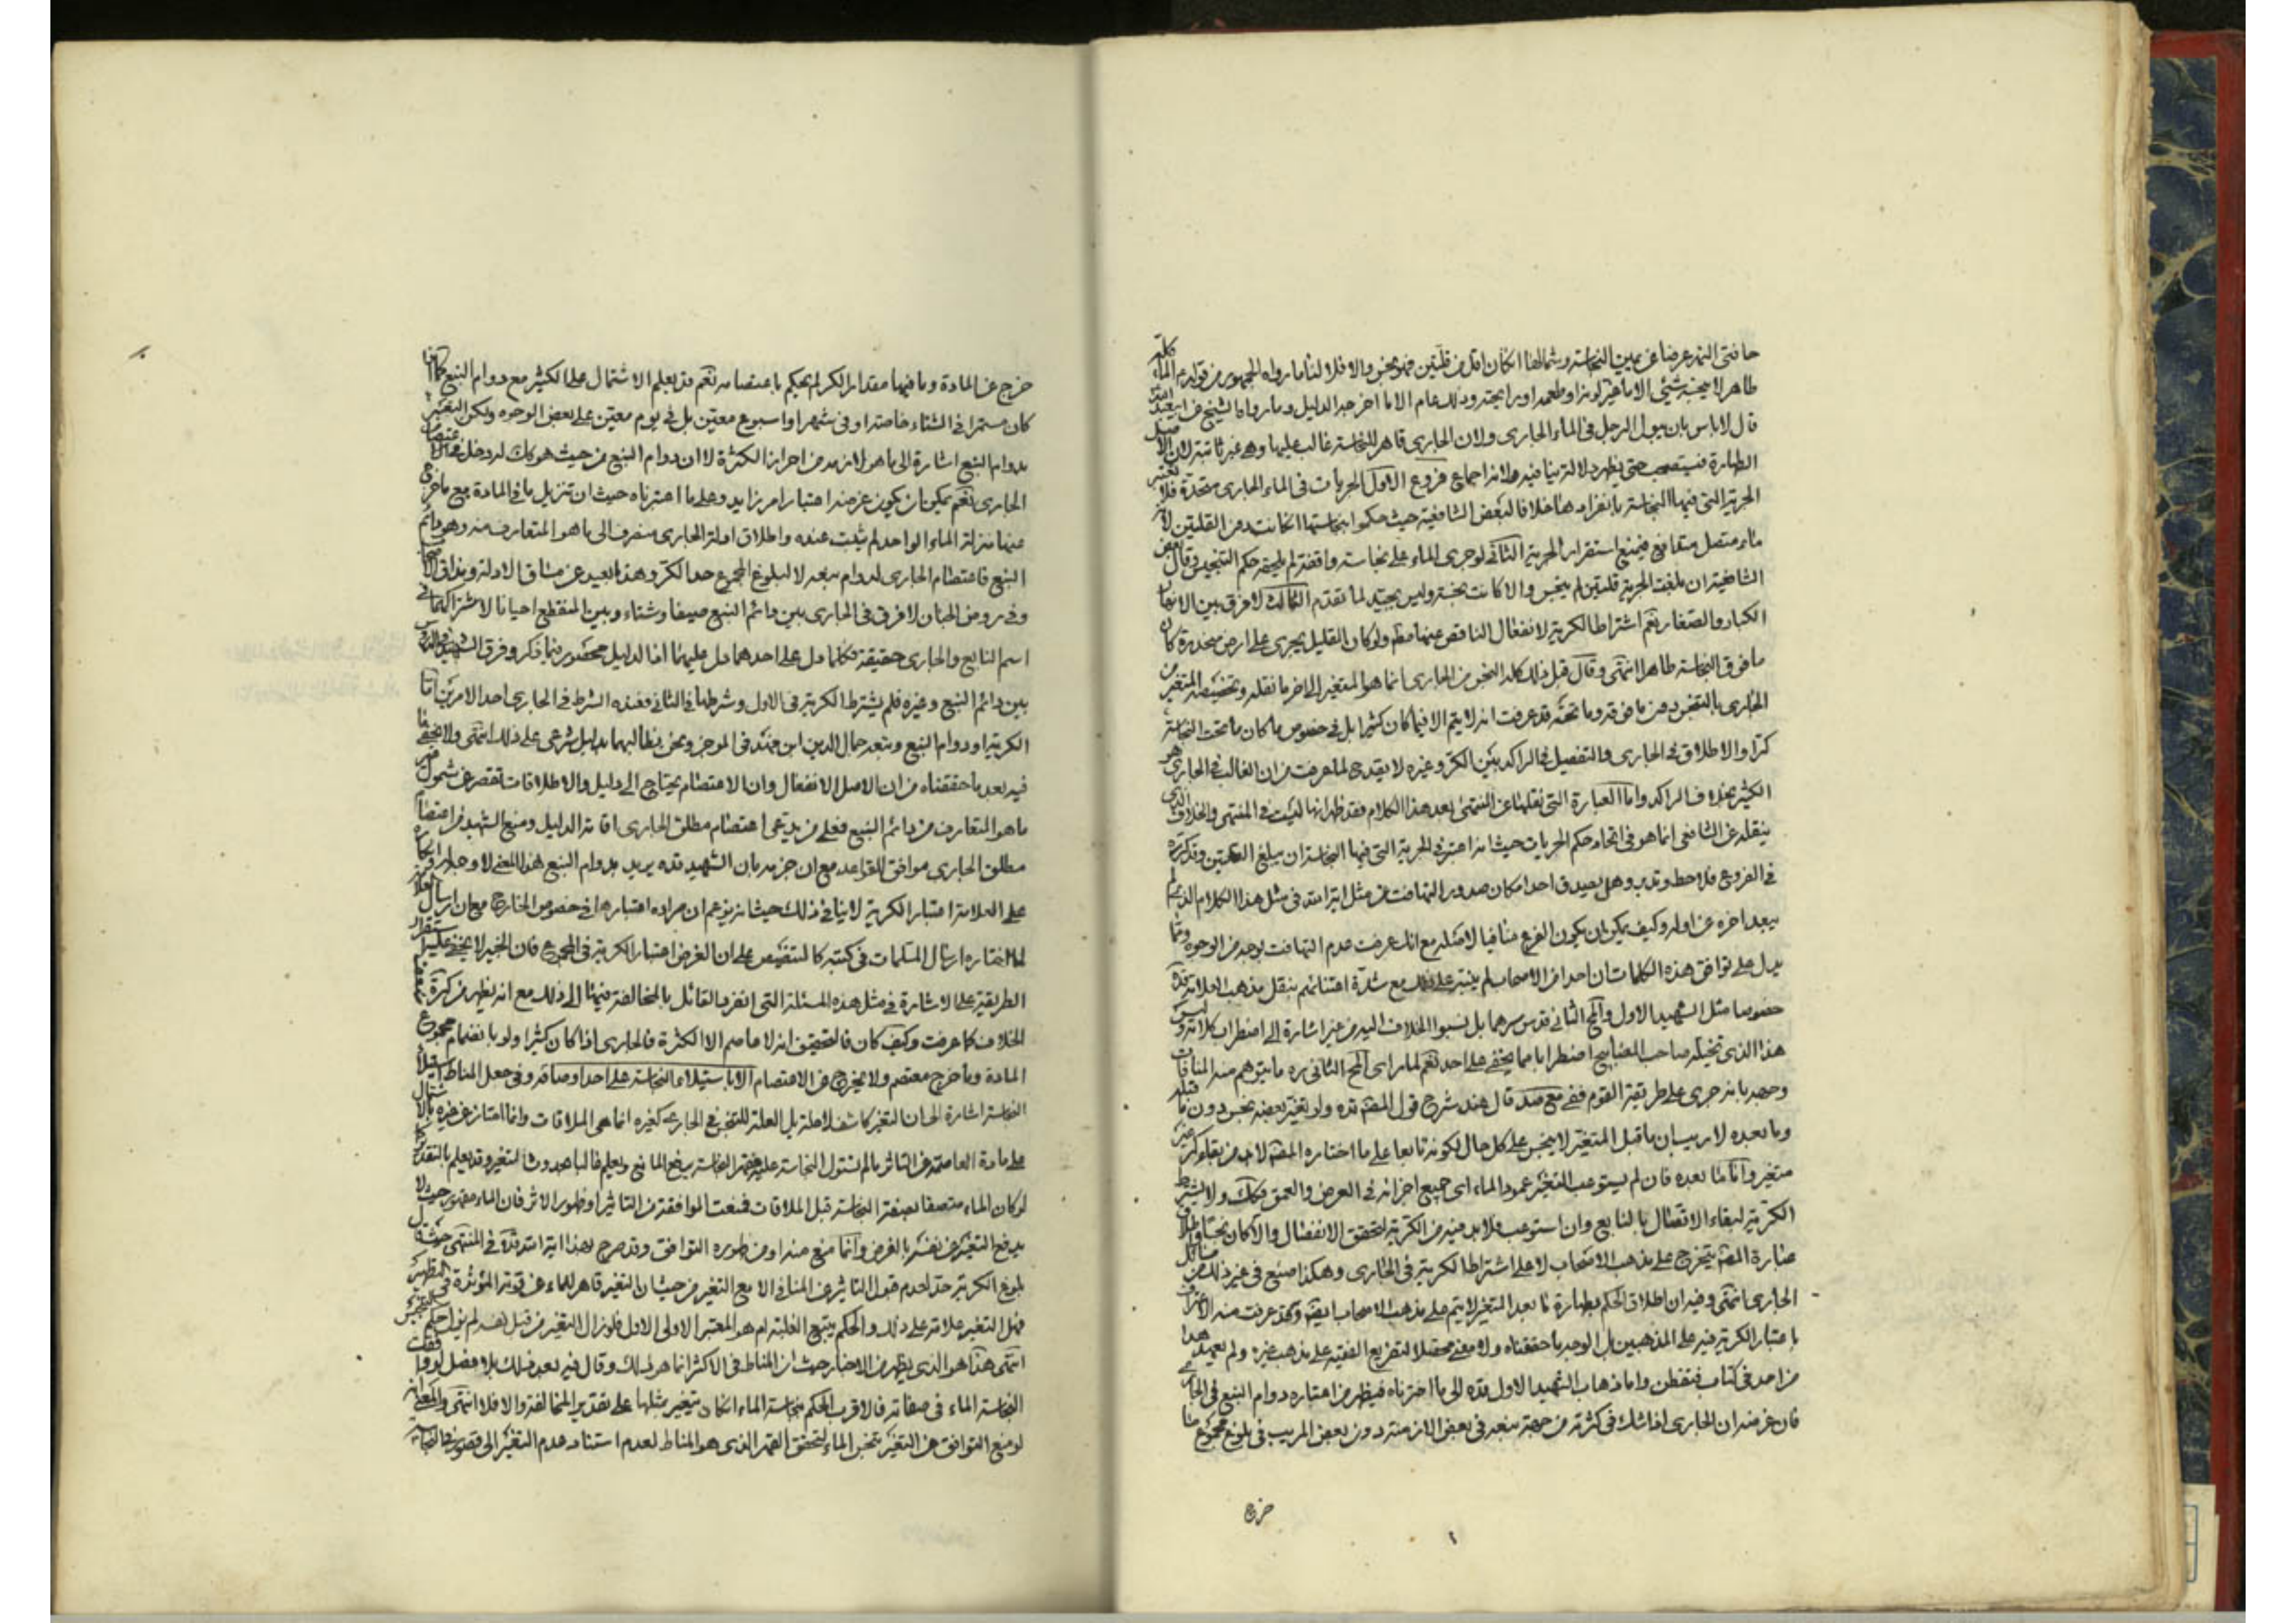 حافتي النهر عرضا عن يمين النجاسة وشمالها اذا كان اقل من قلتين فهو نجس والا فلا لنا ما رواه الجمهور من قوله الماء كله
طاهر لا ينجسه شئ الا ما غير لونه او طعمه او رايحته وذلك عام الا ما اخرجه الدليل وما رواه الشيخ
قال لا باس بان يبول الرجل في الماء الجاري ولان الجاري قاهر للنجاسة غالب عليها وهي غير ثابتة لان الاصل
الطهارة فيستصحب حتى يظهر دلالة ينافيه ولانه اجماع فروع الاول الجريات في الماء الجاري متحدة فلا يعتبر
الجرية التي فيها النجاسة بانفرادها خلافا لبعض الشافعية حيث حكموا بنجاستها اذا كانت دون القلتين لانه
ماء متصل متدافع فيمنع استقرار الجرية الثاني لو جرى الماء على نجاسة واقفة لم يلحقه حكم التنجيس وقال بعض
الشافعية ان بلغت الجرية قلتين لم ينجس والا كانت نجسة وليس بجيد لما تقدم الثالث لا فرق بين الانهار
الكبار والصغار نعم اشتراط الكرية لانفعال الناقص عنها مط ولو كان القليل يجري على ارض منحدرة كان
ما فوق النجاسة طاهرا انتهى وقال قبل ذلك كله النجس من الجاري انما هو المتغير الى اخر ما نقله وتخصيصه المتغير من
الجاري بالتنجس دون ما فوقه وما تحته قد عرفت انه لا يتم الا فيما كان كثيرا بل في خصوص ما كان ما تحت النجاسة
كرا والاطلاق في الجاري والتفصيل في الراكد بين الكر وغيره لا يقدح لما عرفت من ان الغالب في الجاري هو
الكثير بخلاف الراكد واما العبارة التي نقلها عن المنتهى بعد هذا الكلام فقد ظهر انها ليست في المنتهى والخلاف الذي
ينقله عن الشافعي انما هو في اتحاد حكم الجريات حيث انه اعتبر في الجرية التي فيها النجاسة ان يبلغ القلتين وقد ذكره
في الفروع فلاحظ وتدبر وهل يصدق احد امكان صدور التهافت من مثل اية الله في مثل هذا الكلام الذي لم
يبعد اخره عن اوله وكيف يمكن ان يكون الفرع منافيا لاصله مع انك عرفت عدم التهافت بوجه من الوجوه ومما
يدل على توافق هذه الكلمات ان احدا من الاصحاب لم ينبه على ذلك مع شدة اعتنائهم بنقل مذهب العلامة قده
خصوصا مثل الشهيد الاول والمح الثاني قدس سرهما بل نسبوا الخلاف اليه من غير اشارة الى اضطراب كلامه وليس
هذا الذي تخيله صاحب المفاتيح اضطرابا مما يخفى على احد نعم لما راى المح الثاني ره ما يتوهم منه المنافات
وجهه بانه جرى على طريقة القوم ففي مع صد قال عند شرح قول المصن قده ولو تغير بعضه نجس دون ما قبله
وما بعده لا ريب ان ما قبل المتغير لا ينجس على كل حال لكونه تابعا على ما اختاره المصن لا بد من بقاء كر غير
متغير واما ما بعده فان لم يستوعب التغير عمود الماء اي جميع اجزائه في العرض والعمق فكك ولا يشترط
الكرية لبقاء الاتصال بالنابع وان استوعب فلا بد فيه من الكرية لتحقق الانفصال والا كان نجسا واطلاق
عبارة المصن يتخرج على مذهب الاصحاب لا على اشتراط الكرية في الجاري وهكذا صنع في غير ذلك من مسائل
الجاري انتهى وفيه ان اطلاق الحكم بطهارة ما بعد التغير لا يتم على مذهب الاصحاب ايضا وقد عرفت منه الاعتراف
باعتبار الكرية فيه على المذهبين بل الوجه ما حققناه ولا معنى محصلا لتفريع الفقيه على مذهب غيره ولم يعهد هذا
من احد في كتاب فتفطن واما ذهاب الشهيد الاول قده الى ما اخترناه فيظهر من اعتباره دوام النبع في الجاري
فان غرضه ان الجاري اذا شك في كثرته من جهة نبعه في بعض الازمنة دون بعض المريب في بلوغ مجموع ما
خرج
خرج عن المادة وما فيها مقدار الكر لم يحكم باعتصامه نعم قد يعلم الاشتمال على الكثير مع دوام النبع كما اذا
كان مستمرا في الشتاء خاصة او في شهر او اسبوع معين بل في يوم معين على بعض الوجوه ولكن التعبير
بدوام النبع اشارة الى ما هو لازمه من احراز الكثرة لا ان دوام النبع من حيث هو كك له دخل في اعتصام
الجاري نعم يمكن ان يكون غرضه اعتبار امر زايد وعلى ما اعتبرناه حيث ان تنزيل ما في المادة مع ما خرج
عنها منزلة الماء الواحد لم يثبت عنده واطلاق ادلة الجاري منصرف الى ما هو المتعارف منه وهو دائم
النبع فاعتصام الجاري لدوام نبعه لا لبلوغ المجموع حد الكر وهذا بعيد عن مساق الادلة ومذاق الاصحاب
وفي روض الجنان لا فرق في الجاري بين دائم النبع صيفا وشتاء وبين المنقطع احيانا لاشتراكهما في
اسم النابع والجاري حقيقة فكلما دل على احدهما دل عليهما اذ الدليل محصور فيما ذكر وفرق الشهيد في الدروس
بين دائم النبع وغيره فلم يشترط الكرية في الاول وشرطها في الثاني فعنده الشرط في الجاري احد الامرين اما
الكرية او دوام النبع وتبعه جمال الدين ابن فهد في الموجز ونحن نطالبهما بدليل شرعي على ذلك انتهى ولا يخفى ما
فيه بعد ما حققناه من ان الاصل الانفعال وان الاعتصام يحتاج الى دليل والاطلاقات تقصر عن شمول غير
ما هو المتعارف من دائم النبع فعلى من يدعي اعتصام مطلق الجاري اقامة الدليل ومنع الشهيد من اعتصام
مطلق الجاري موافق للقواعد مع ان جزمه بان الشهيد قده يريد بدوام النبع هذا المعنى لا وجه له وانكاره
على العلامة اعتبار الكرية لا ينافي ذلك حيث انه يزعم ان مراده اعتبارها في خصوص الخارج مع ان ارسال
لما اختاره ارسال المسلمات في كتبه كالتنصيص على ان الغرض اعتبار الكرية في المجموع فان الخبير لا يخفى عليه استقرار
الطريقة على الاشارة في مثل هذه المسئلة التي انفرد القائل بالمخالفة فيها الى ذلك مع انه يظهر من ذكره
الخلاف كما عرفت وكيف كان فالتحقيق انه لا عاصم الا الكثرة فالجاري اذا كان كثيرا ولو بانضمام مجموع
المادة وما خرج معتصم ولا يخرج من الاعتصام الا باستيلاء النجاسة على احد اوصافه وفي جعل المناط استيلاء
النجاسة اشارة الى ان التغير كاشف لا علة بل العلة للتنجس في الجاري كغيره انما هي الملاقات وانما امتاز عن غيره بالاشتمال
على مادة العاصمة عن التاثر ما لم يستول النجاسة عليه فقهر النجاسة يرفع المانع ويعلم غالبا بحدوث التغير وقد يعلم بالتقدير كما
لو كان الماء متصفا بصفة النجاسة قبل الملاقات فمنعت الموافقة من التاثير او ظهور الاثر فان الماء مقهور حيث لا
يدفع التغير عن نفسه بالفرض وانما منع منه او من ظهوره التوافق وقد صرح بهذا اية الله قده في المنتهى حيث قال
بلوغ الكرية حد لعدم قبول التاثير عن الملاقي الا مع التغير من حيث ان التغير قاهر للماء عن قوته المؤثرة في التطهير
فهل التغير علامة على ذلك والحكم يتبع الغلبة ام هو المعتبر الاولى الاول فلو زال التغير من قبل نفسه لم يزل حكم التنجيس
انتهى هذا هو الذي يظهر من الاخبار حيث ان المناط في الاكثر انما هو ذلك وقال فيه بعد ذلك بلا فصل لو وافقت
النجاسة الماء في صفاته فالاقرب الحكم بنجاسة الماء ان كان يتغير بمثلها على تقدير المخالفة والا فلا انتهى والمعنى انه
لو منع التوافق من التغير يتنجس الماء لتحقق القهر الذي هو المناط لعدم استناد عدم التغير الى قصور في النجاسة